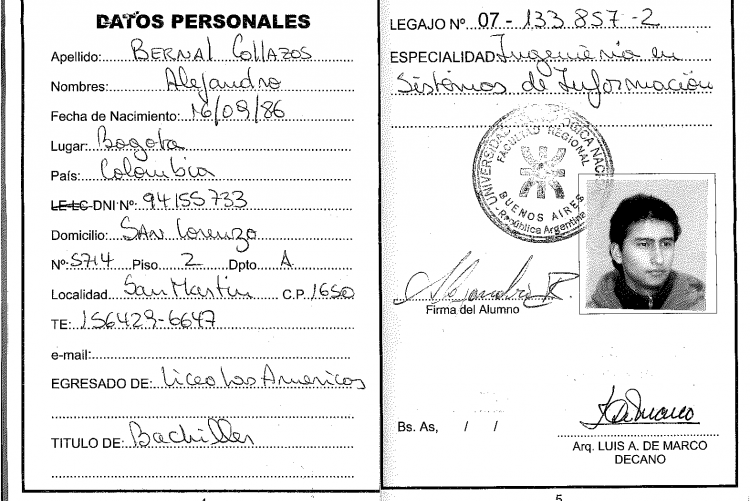 DATOS PERSONALES
Apellido: BERNAL COLLAZOS
Nombres: Alejandro
Fecha de Nacimiento: 16/09/86
Lugar: Bogota
País: Colombia
LE-LC-DNI-Nº: 94155733
Domicilio: SAN Lorenzo
Nº 5714 Piso 2 Dpto A
Localidad San Martin C.P. 1650
TE: 156429-6647
e-mail:
EGRESADO DE: Liceo Las Americas
TITULO DE: Bachiller
4
LEGAJO Nº 07 - 133857-2
ESPECIALIDAD Ingeniería en
Sistemas de Información
UNIVERSIDAD TECNOLOGICA NACIONAL
FACULTAD REGIONAL
BUENOS AIRES
República Argentina
Alejandro
Firma del Alumno
Bs. As, / /
Arq. LUIS A. DE MARCO
DECANO
5